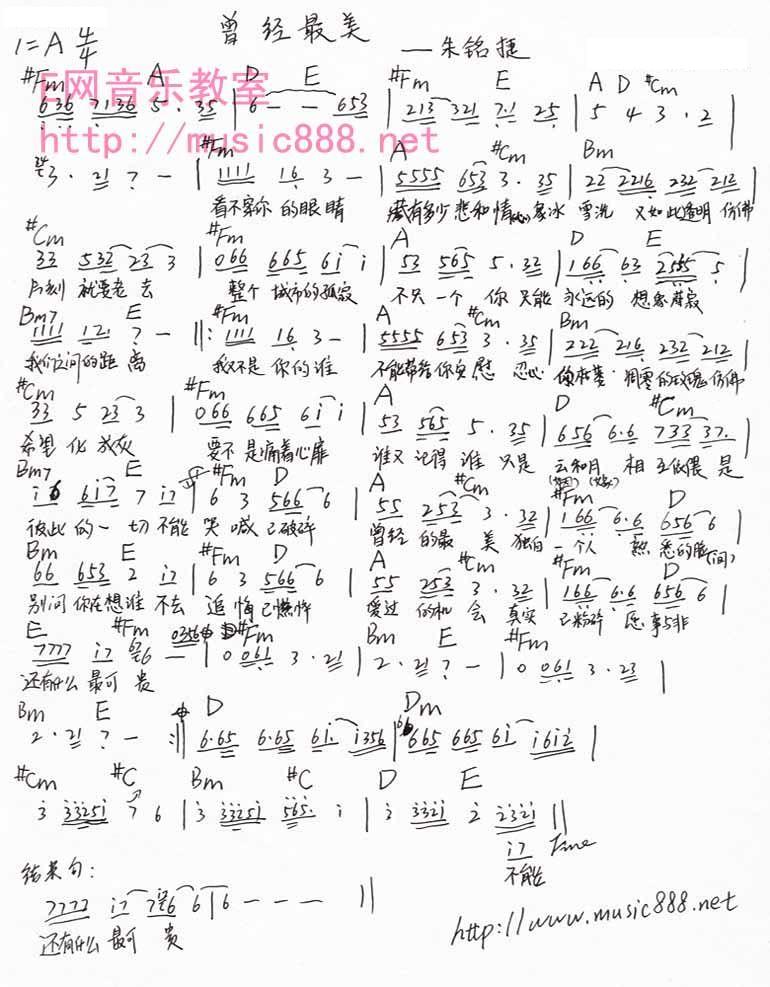 曾经最美
1=A 4/4
——朱铭捷
E网音乐教室
http://music888.net
#Fm A D E #Fm E A D #Cm
636 7136 5· 35 | 6 - - 653 | 213 321 7·1 25 | 5 4 3 · 2 |
#Fm A #Cm Bm
3 · 21 7 - | 1111 16 3 - | 5555 653 3 · 35 | 22 2216 232 212
看不穿你 的眼睛 藏有多少 悲和情 象冰 雪洗 又如此透明 仿佛
#Cm #Fm A D E
33 532 23 3 | 066 665 61 1 | 53 565 5 · 32 | 166 63 2555 5 |
片刻 就要老去 整个 城市的孤寂 不只一个 你 只能 永远的 想象
Bm7 E #Fm A #Cm Bm
1111 121 7 - ||: 1111 16 3 - | 5555 653 3 · 35 | 222 216 232 212
我们之间的距离 我又不是 你的谁 不能带给你安慰 忍心 凋零的玫瑰 仿佛
#Cm #Fm A D #Cm
33 5 23 3 | 066 665 61 1 | 53 565 5 · 35 | 656 6·6 733 37· |
希望 化成灰 要不 是痛着心扉 谁又 记得 谁 只是 云和月 相 互依偎 是
Bm7 E #Fm D A #Cm #Fm D
i6 617 7 17 | 6 3 566 6 | 55 253 3 · 32 | 166 6·6 656 6 |
彼此的一 切不能 哭 喊 已破碎 曾经 的最 美 独自 一个人 熟 悉的脸
Bm E #Fm D A #Cm #Fm D
66 653 2 17 | 6 3 566 6 | 55 253 3 · 32 | 166 6·6 656 6 |
别问 你在想谁 不去 追 悔 已憔悴 爱过 的机 会 真实 已粉碎 愿 事与非
E #Fm 0356 #Fm Bm E #Fm
7777 17 6 - | 0 061 3 · 21 | 2 · 21 7 - | 0 061 3 · 23 |
还有什么 最可 贵
Bm E D Dm
2 · 21 7 - :|| 6·65 6·65 61· 1356 | 665 665 61 1612 |
#Cm #C Bm #C D E
3 33251 7 6 | 3 33251 565· 1 | 2 3321 2 2321 ||
17 Fine
不能
结束句:
7777 17 766 6 | 6 - - - ||
还有什么 最可 贵
http://www.music888.net